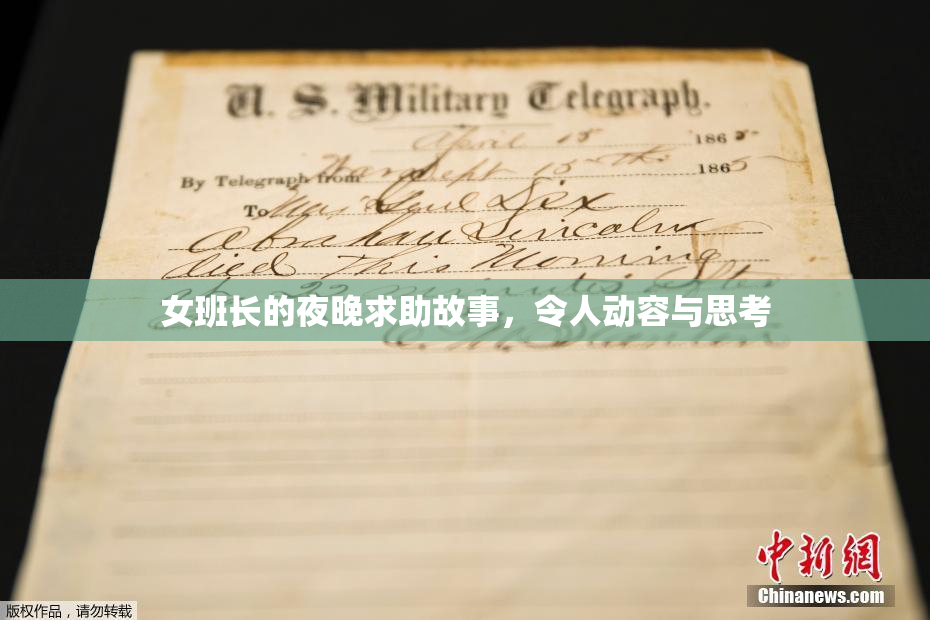 U. S. Military Telegraph.
April 15 1865
By Telegraph from War Dept 15th 1865
To Maj Genl Dix
Abraham Lincoln
died This Morning
at 22 minutes after
女班长的夜晚求助故事，令人动容与思考
E. M. Stanton
中新网
Chinanews.com
版权作品，请勿转载